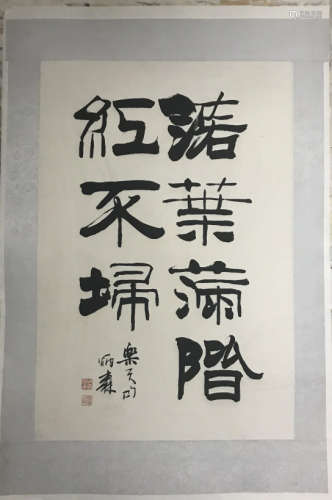 落葉滿階
紅不埽
樂天句
炳森